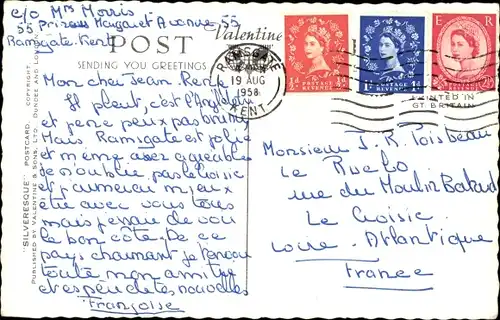 c/o Mrs Morris
55 Prizess Margaret Avenue 55
Ramsgate. Kent
POST
Valentine
SENDING YOU GREETINGS
Mon cher Jean René
Il pleut, c'est l'Angleterre
et je ne peux pas bronzer
Mais Ramsgate est jolie
et même assez agréable
Je n'oublie pas le Croisic
et j'aimerai mieux
être avec vous tous
mais je vais de voir
le bon côté. De ce
pays charmant je t'envoie
toute mon amitié
et espère de tes nouvelles
Françoise
"SILVERESQUE" POSTCARD. COPYRIGHT.
PUBLISHED BY VALENTINE & SONS, LTD., DUNDEE AND
RAMSGATE
19 AUG
1958
KENT
POSTAGE REVENUE
½d
POSTAGE REVENUE
1d
E R
2½
PRINTED IN
GT BRITAIN
Monsieur J. R. Poisbeau
Le
rue du Moulin
Le Croisic
Loire. Atlantique
France